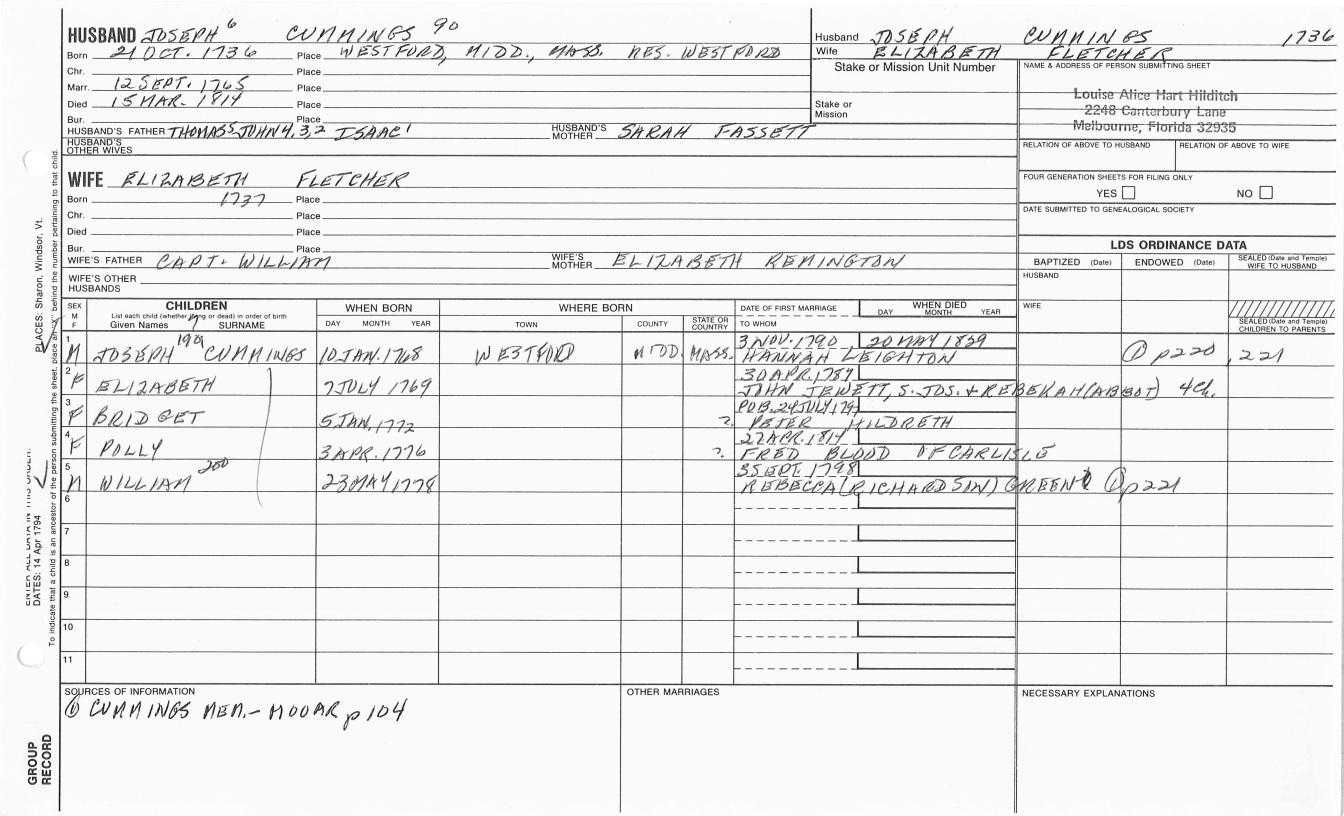 HUSBAND JOSEPH 6 CUMMINGS 90
Born 21 OCT. 1736 Place WESTFORD, MIDD., MASS. RES. WESTFORD
Chr. Place
Marr. 12 SEPT. 1765 Place
Died 15 MAR. 1814 Place
Bur. Place
HUSBAND'S FATHER THOMAS 5, JOHN 4, 3, 2 ISAAC 1 HUSBAND'S MOTHER SARAH FASSETT
HUSBAND'S OTHER WIVES
Husband JOSEPH CUMMINGS 1736
Wife ELIZABETH FLETCHER
Stake or Mission Unit Number
Stake or Mission
NAME & ADDRESS OF PERSON SUBMITTING SHEET
Louise Alice Hart Hilditch
2248 Canterbury Lane
Melbourne, Florida 32935
RELATION OF ABOVE TO HUSBAND RELATION OF ABOVE TO WIFE
FOUR GENERATION SHEETS FOR FILING ONLY
YES NO
DATE SUBMITTED TO GENEALOGICAL SOCIETY
WIFE ELIZABETH FLETCHER
Born 1737 Place
Chr. Place
Died Place
Bur. Place
WIFE'S FATHER CAPT. WILLIAM WIFE'S MOTHER ELIZABETH REMINGTON
WIFE'S OTHER HUSBANDS
LDS ORDINANCE DATA
BAPTIZED (Date) ENDOWED (Date) SEALED (Date and Temple) WIFE TO HUSBAND
HUSBAND
WIFE
SEALED (Date and Temple) CHILDREN TO PARENTS
SEX M F
CHILDREN
List each child (whether living or dead) in order of birth
Given Names SURNAME
WHEN BORN DAY MONTH YEAR
WHERE BORN TOWN COUNTY STATE OR COUNTRY
DATE OF FIRST MARRIAGE TO WHOM
WHEN DIED DAY MONTH YEAR
1 M JOSEPH 199 CUMMINGS 10 JAN. 1768 WESTFORD MIDD. MASS. 3 NOV. 1790 20 MAY 1859
HANNAH LEIGHTON ① p220, 221
2 F ELIZABETH 7 JULY 1769 30 APR. 1789
JOHN JEWETT, S. JOS. & REBEKAH (ABBOT) 4 Ch.
3 F BRIDGET 5 JAN. 1772 POB. 24 JULY 1791
?. PETER HILDRETH
4 F POLLY 3 APR. 1776 27 APR. 1814
?. FRED BLOOD OF CARLISLE
5 M WILLIAM 200 23 MAY 1778 3 SEPT. 1798
REBECCA (RICHARDSON) GREEN ① p221
6
7
8
9
10
11
SOURCES OF INFORMATION
① CUMMINGS MEM. - MOOAR p 104
OTHER MARRIAGES
NECESSARY EXPLANATIONS
GROUP RECORD
ENTER ALL DATA IN THIS ORDER:
DATES: 14 Apr 1794
PLACES: Sharon, Windsor, Vt.
To indicate that a child is an ancestor of the person submitting the sheet, place an "X" behind the number pertaining to that child.